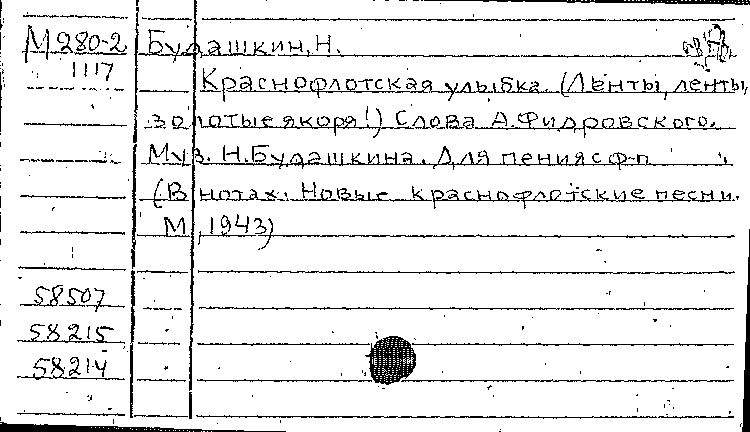 М280-2 Будашкин, Н.
1117
Краснофлотская улыбка. (Ленты, ленты,
золотые якоря!) Слова А. Фидровского.
Муз. Н. Будашкина. Для пения с ф-п.
(В нотах: Новые краснофлотские песни.
М., 1943)
58507
58215
58214